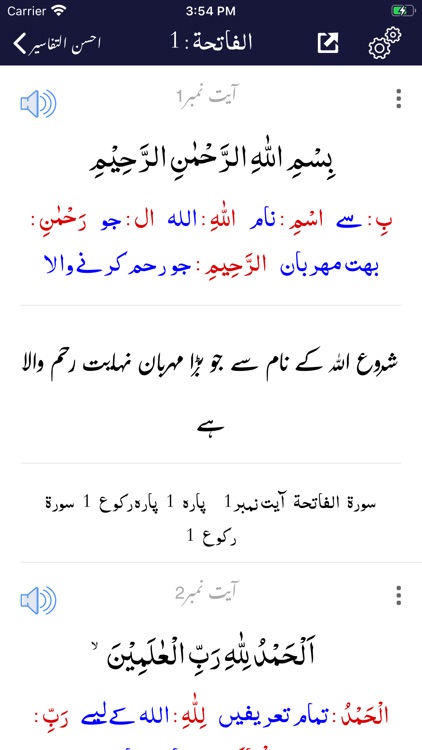 Carrier 3:54 PM
احسن التفاسیر الفاتحة : 1
آیت نمبر1
بِسْمِ اللّٰهِ الرَّحْمٰنِ الرَّحِيْمِ
بِ: سے اسْمِ: نام اللّٰهِ: الله ال: جو رَحْمٰنِ:
بهت مهربان الرَّحِيمِ: جو رحم کرنے والا
شروع اللہ کے نام سے جو بڑا مہربان نہایت رحم والا
ہے
سورة الفاتحة آیت نمبر1 پاره 1 پاره رکوع 1 سورة
رکوع 1
آیت نمبر2
اَلْحَمْدُ لِلّٰهِ رَبِّ الْعٰلَمِيْنَ ۙ
الْحَمْدُ: تمام تعریفیں لِلّٰهِ: الله کے لیے رَبِّ: